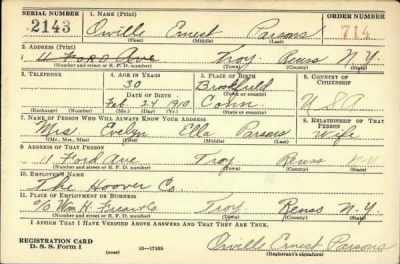 SERIAL NUMBER 1. NAME (Print) ORDER NUMBER
2143 Orville Ernest Parsons 714
(First) (Middle) (Last)
2. ADDRESS (Print)
11 Ford Ave Troy Renss N.Y.
(Number and street or R. F. D. number) (Town) (County) (State)
3. TELEPHONE 4. AGE IN YEARS 5. PLACE OF BIRTH 6. COUNTRY OF CITIZENSHIP
30 Brookfield
DATE OF BIRTH (Town or county)
Feb. 24 1910 Conn. U.S.A
(Exchange) (Number) (Mo.) (Day) (Yr.) (State or country)
7. NAME OF PERSON WHO WILL ALWAYS KNOW YOUR ADDRESS 8. RELATIONSHIP OF THAT PERSON
Mrs. Evelyn Ella Parsons Wife
(Mr., Mrs., Miss) (First) (Middle) (Last)
9. ADDRESS OF THAT PERSON
11 Ford Ave Troy Renss N.Y.
(Number and street or R. F. D. number) (Town) (County) (State)
10. EMPLOYER'S NAME
The Hoover Co.
11. PLACE OF EMPLOYMENT OR BUSINESS
c/o Wm H. Frear Co. Troy Renss N.Y.
(Number and street or R. F. D. number) (Town) (County) (State)
I AFFIRM THAT I HAVE VERIFIED ABOVE ANSWERS AND THAT THEY ARE TRUE.
REGISTRATION CARD
D. S. S. Form 1 (over) 16-17105 Orville Ernest Parsons
(Registrant's signature)